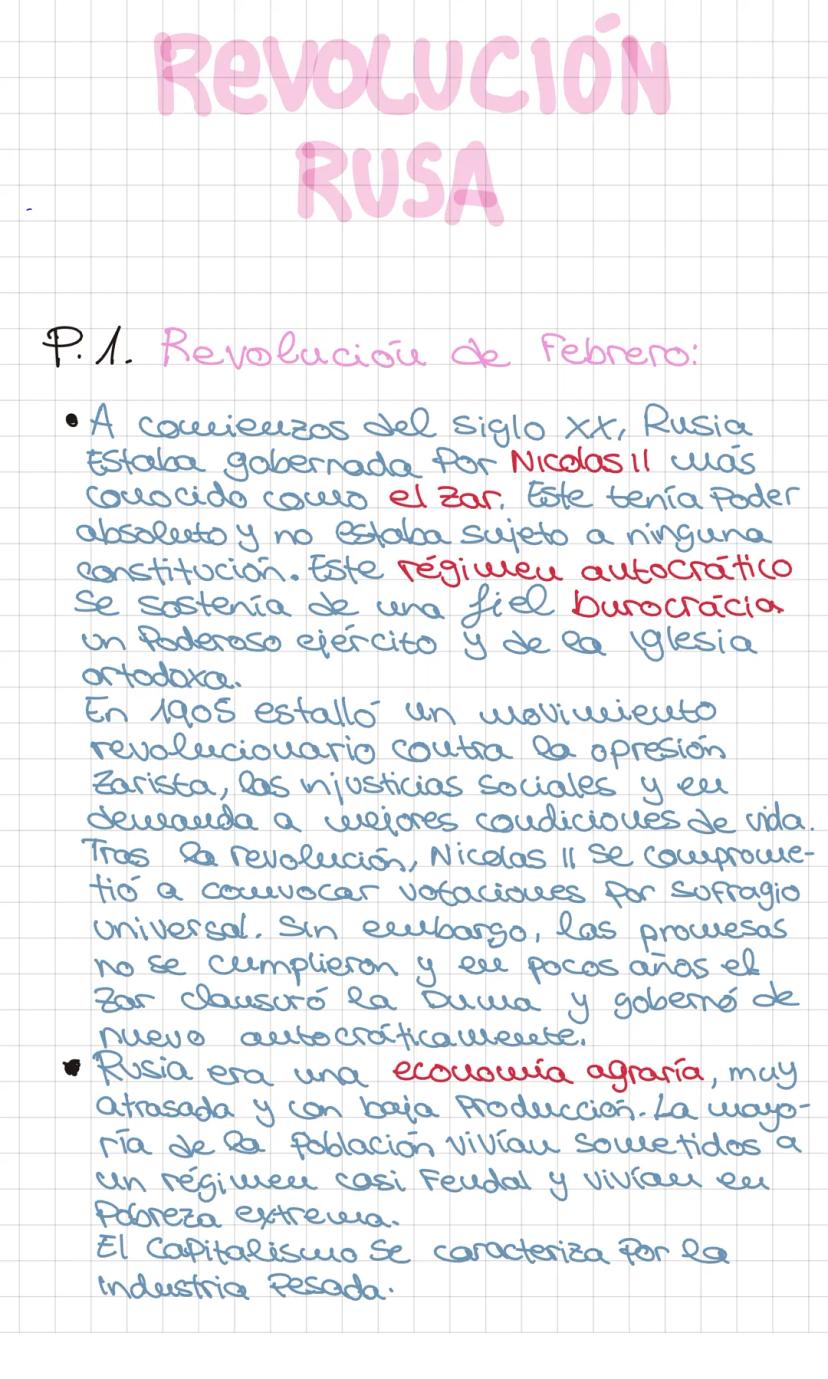 REVOLUCIÓN
RUSA
P.1. Revolución de Febrero:
• A comienzos del siglo XX, Rusia
Estaba gobernada Por Nicolas II más
conocido como el zar. Este tenía Poder
absoluto y no estaba sujeto a ninguna
constitución. Este régimen autocrático
Se sostenía de una fiel burocrácia
un Poderoso ejército y de la Iglesia
ortodoxa.
En 1905 estalló un movimiento
revolucionario contra la opresión
Zarista, las injusticias sociales y en
demanda a mejores condiciones de vida.
Tras la revolución, Nicolas II Se comprome-
tió a convocar votaciones por Sufragio
universal. Sin embargo, las promesas
no se cumplieron y en pocos años el
Zar clausuró la Duma y gobernó de
nuevo autocráticamente.
• Rusia era una economía agraría, muy
atrasada y con baja Producción. La mayo-
ría de la Población vivían Sometidos a
un régimen casi Feudal y vivían en
Pobreza extrema.
El Capitalismo Se caracteriza Por la
industria Pesada.